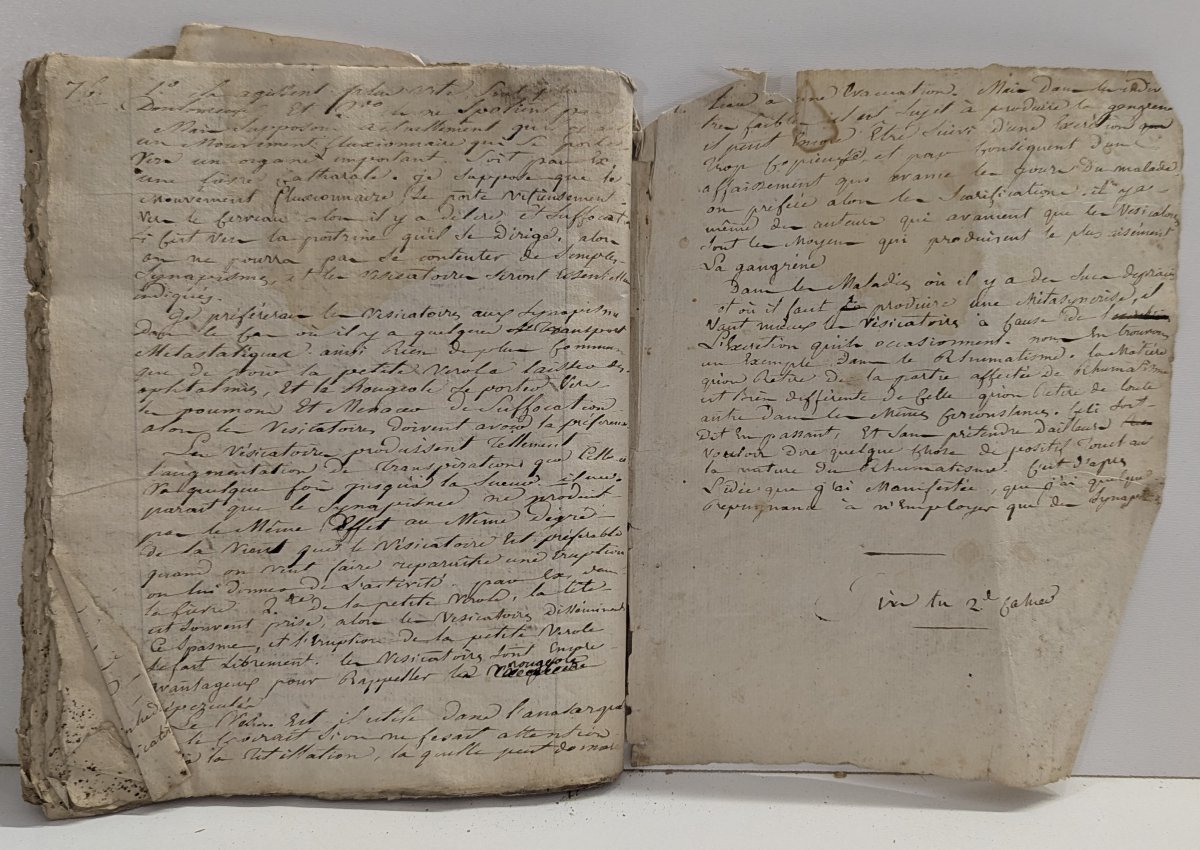 76.
1o. ils agissent plus vite
Douloureux. Et
Mais Supposons actuellement que
un Mouvement fluxionnaire qui se porte
Vers un organe important. Soit par Ex.
une fievre Catharale. je Suppose que le
mouvement fluxionnaire Se porte
Vers le Cerveau alors il y a delire et Suffocat
Si C'est Vers la poitrine qu'il Se dirige. alors
on ne pourra pas Se contenter de Simples
Synapismes, et les Vesicatoires Seront
indiqués.
Je préférerais les Vesicatoires aux Synapismes
dans le Cas où il y a quelque transport
Métastatique. ainsi Rien de plus Commun
que de voir la petite Verole laisser des
ophtalmies, Et la Rougeole Se porter Vers
le poumons Et Menacer de Suffocation
alors les Vesicatoires doivent avoir la préférence
Les Vésicatoires produisent tellement
l'augmentation de transpiration que Celle-ci
Va quelque fois jusqu'à la Sueur. il me
parait que le Synapisme ne produit
pas le Même Effet au Même dégré
de la Vient que le Vésicatoire Est préférable
quand on veut faire reparaitre une Eruption
ou lui donner de L'activité. par Ex. dans
la fievre 2.re de la petite Verole, la tête
est Souvent prise, alors les Vesicatoires
Ce Spasme, et l'Eruption de la petite Verole
Se fait Librement. les Vesicatoires Sont Encore
avantageux pour Rappeller la rougeole
Le Est il utile dans l'anasarque
le croirait Si on ne fesait attention
à la la quelle peut donner
lieu à une Evacuation. Mais dans les
tres faibles il est Sujet à produire la gangrene
il peut Encore Etre Suivi d'une Excretion
trop Copieuse et par Consequent d'un
affaissement qui avance les jours du malade
on préfère alors les Scarifications. il y a
même des auteurs qui avancent que les Vesicatoires
Sont les Moyens qui produisent le plus aisément
La gangrène
Dans les Maladies où il y a des Sucs
et où il faut produire une Métasyncrise, il
Vaut mieux les Vésicatoires à Cause de
L'Excrétion qu'ils occasionnent. nous En trouvons
un Exemple dans le Rhumatisme. la Matière
qu'on Retire de la partie affectée de Rhumatisme
est Bien differente de Celle qu'on retire de toute
autre dans les Mêmes Circonstances. Celà Soit
Dit En passant, Et Sans prétendre d'ailleurs
Vouloir dire quelque chose de positif Touchant
la nature du Rhumatisme. C'est d'après
L'idée que j'ai Manifestée, que j'ai quelque
Repugnance à n'Employer que des
du 2d Cahier